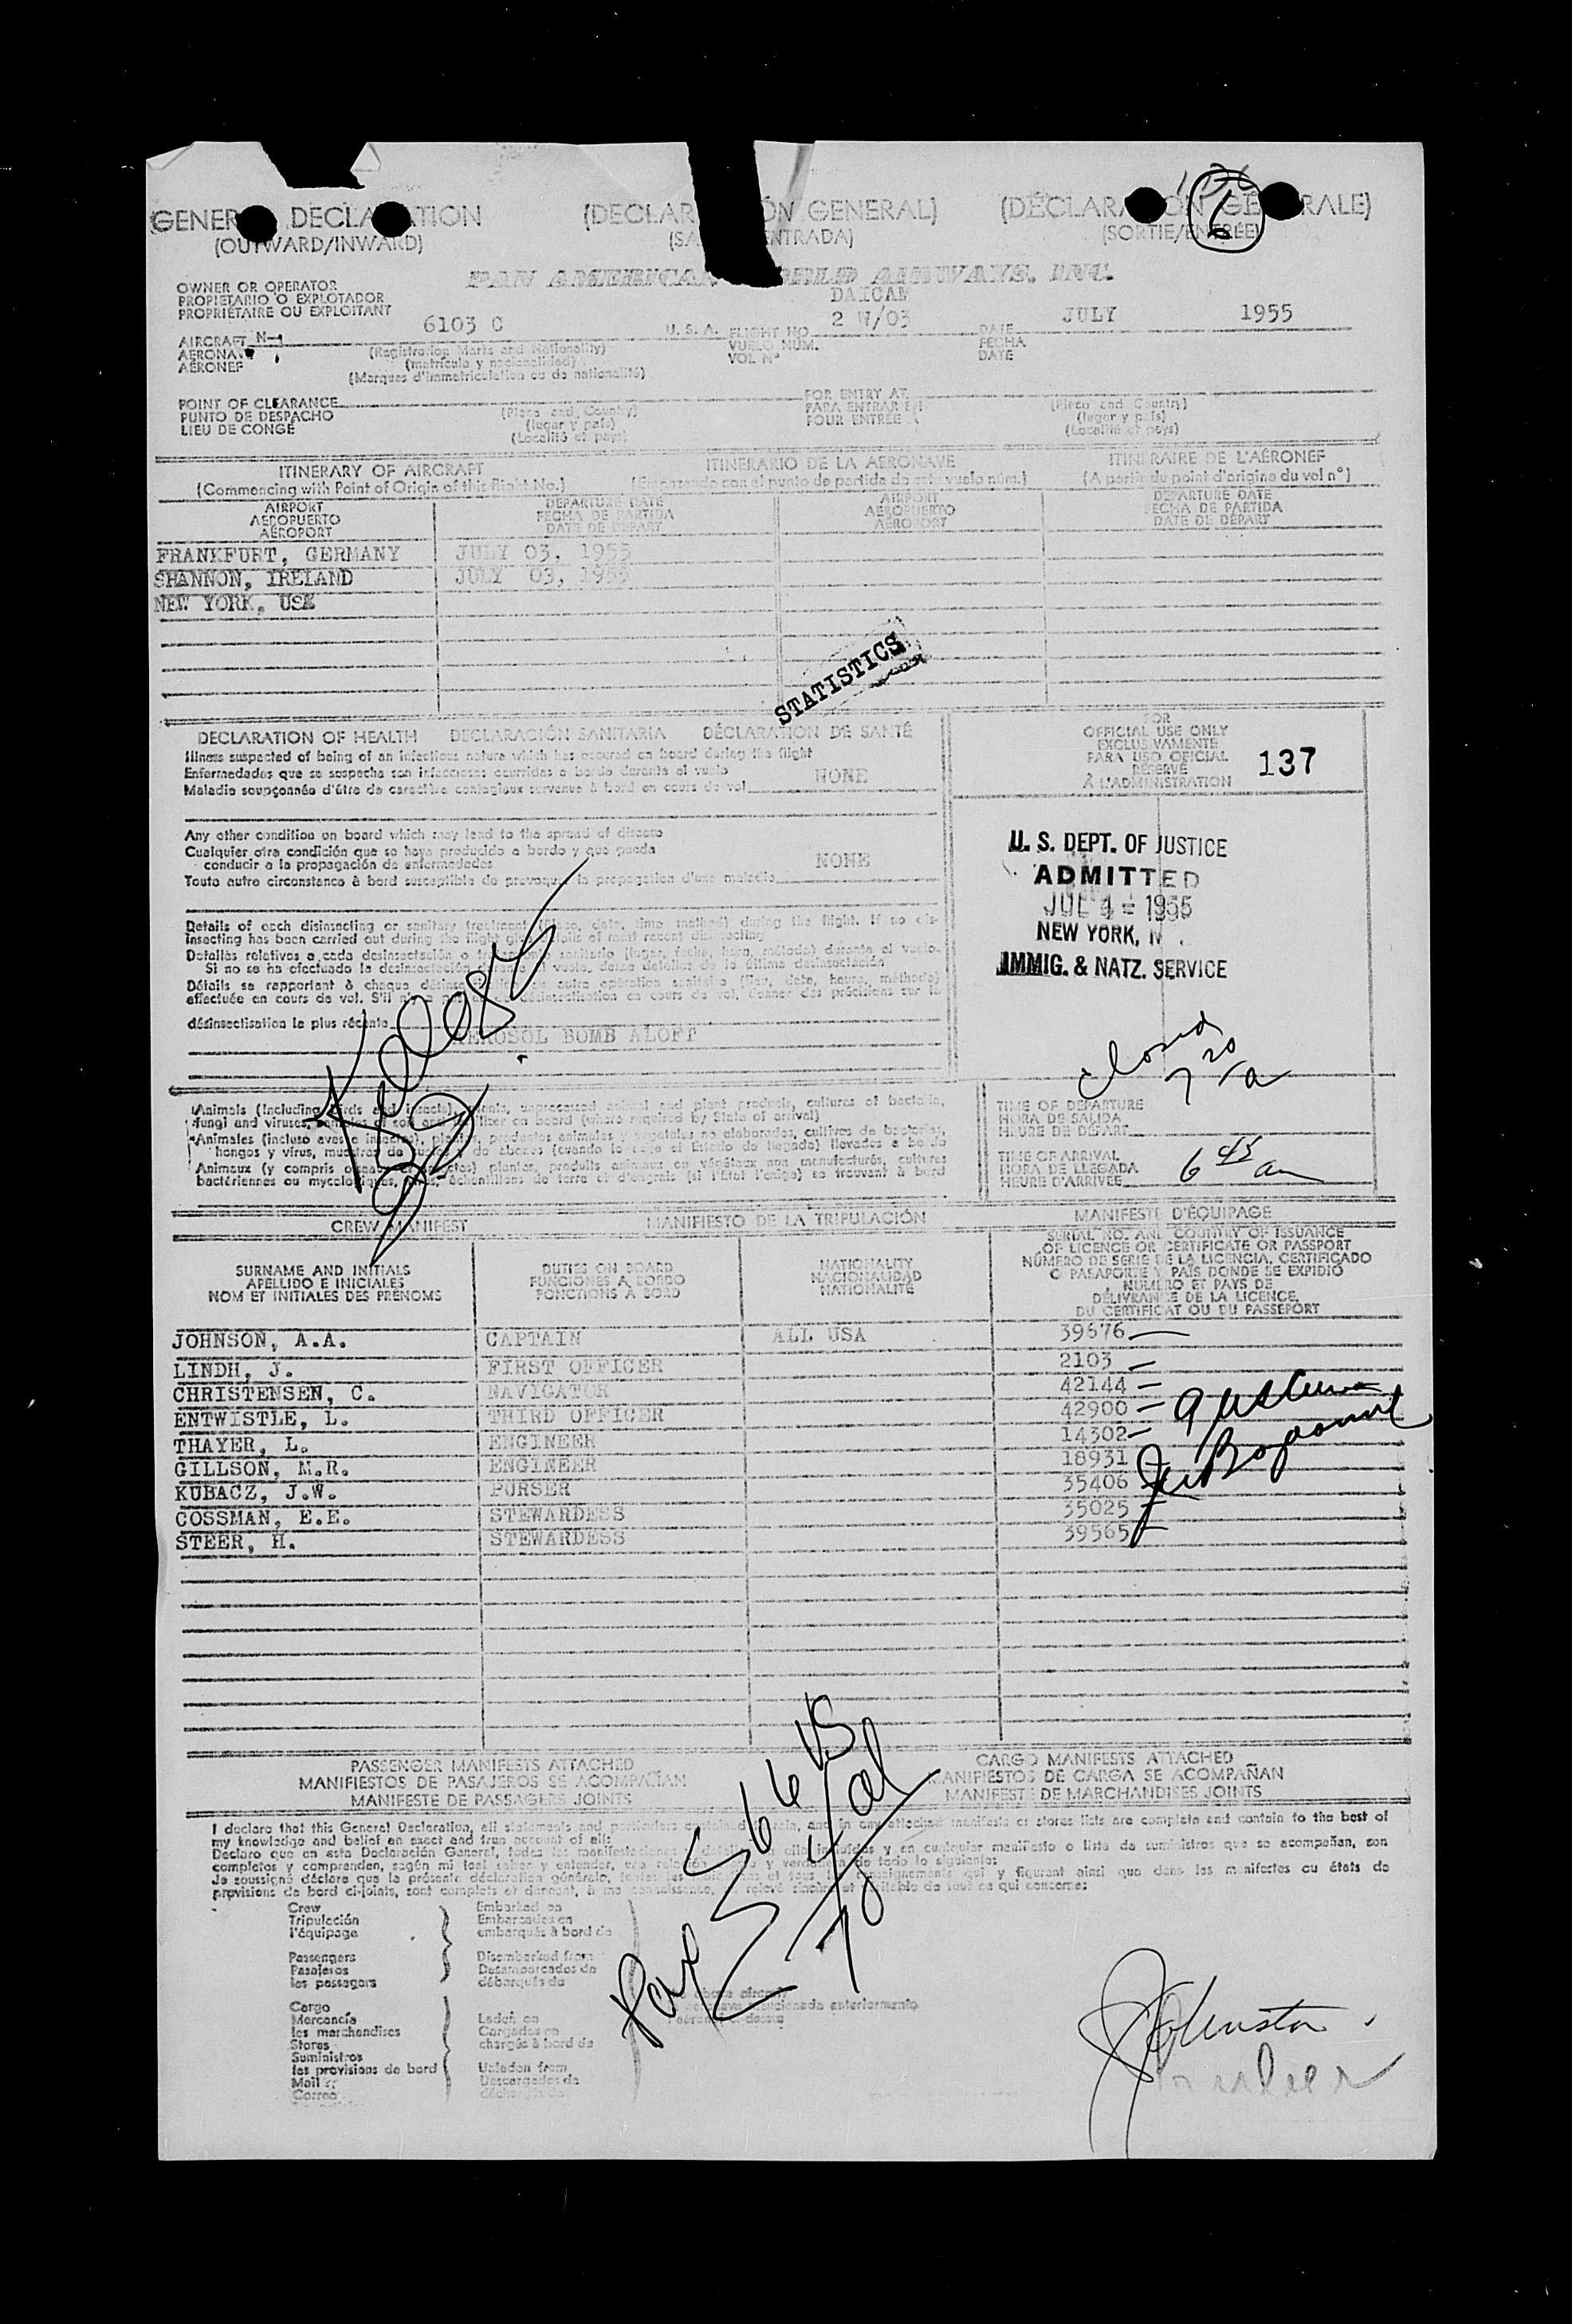 GENERAL DECLARATION (DECLARACIÓN GENERAL) (DÉCLARATION GÉNÉRALE)
(OUTWARD/INWARD) (SALIDA/ENTRADA) (SORTIE/ENTRÉE)
6
OWNER OR OPERATOR
PROPIETARIO O EXPLOTADOR
PROPRIÉTAIRE OU EXPLOITANT
PAN AMERICAN WORLD AIRWAYS, INC.
AIRCRAFT N- 6103 C U. S. A. FLIGHT NO. 2 W/03 DATE JULY 1955
AERONAVE VUELO NÚM. FECHA
AÉRONEF VOL Nº DATE
(Registration Marks and Nationality)
(matrícula y nacionalidad)
(Marques d'immatriculation ou de nationalité)
POINT OF CLEARANCE FOR ENTRY AT
PUNTO DE DESPACHO PARA ENTRAR EN
LIEU DE CONGÉ POUR ENTRÉE À
(Place and Country) (Place and Country)
(lugar y país) (lugar y país)
(Localité et pays) (Localité et pays)
ITINERARY OF AIRCRAFT ITINERARIO DE LA AERONAVE ITINÉRAIRE DE L'AÉRONEF
(Commencing with Point of Origin of this flight No.) (Empezando con el punto de partida de este vuelo núm.) (A partir du point d'origine du vol n°)
AIRPORT DEPARTURE DATE AIRPORT DEPARTURE DATE
AEROPUERTO FECHA DE PARTIDA AEROPUERTO FECHA DE PARTIDA
AÉROPORT DATE DE DÉPART AÉROPORT DATE DE DÉPART
FRANKFURT, GERMANY JULY 03, 1955
SHANNON, IRELAND JULY 03, 1955
NEW YORK, USA
STATISTICS
DECLARATION OF HEALTH DECLARACIÓN SANITARIA DÉCLARATION DE SANTÉ
Illness suspected of being of an infectious nature which has occured on board during the flight
Enfermedades que se sospecha son infecciosas ocurridas a bordo durante el vuelo NONE
Maladie soupçonnée d'être de caractère contagieux survenue à bord en cours de vol
Any other condition on board which may lead to the spread of disease
Cualquier otra condición que se haya producido a bordo y que pueda
conducir a la propagación de enfermedades NONE
Toute autre circonstance à bord susceptible de provoquer la propagation d'une maladie
Details of each disinsecting or sanitary treatment (place, date, time method) during the flight. If no dis-
insecting has been carried out during the flight give details of most recent disinsecting
Detalles relativos a cada desinsectación o tratamiento sanitario (lugar, fecha, hora, método) durante el vuelo.
Si no se ha efectuado la desinsectación durante el vuelo, dense detalles de la última desinsectación
Détails se rapportant à chaque désinsectisation ou autre opération sanitaire (lieu, date, heure, méthode)
effectuée en cours de vol. S'il n'y a pas eu désinsectisation en cours de vol, donner des précisions sur la
désinsectisation la plus récente
AEROSOL BOMB ALOFT
FOR
OFFICIAL USE ONLY
EXCLUSIVAMENTE
PARA USO OFICIAL
RÉSERVÉ
À L'ADMINISTRATION
137
U. S. DEPT. OF JUSTICE
ADMITTED
JUL 4 - 1955
NEW YORK, N
IMMIG. & NATZ. SERVICE
Closed
7 20 a
Kellogg
Animals (including birds and insects), plants, unprocessed animal and plant products, cultures of bacteria,
fungi and viruses, samples of soil and fertilizer on board (where required by State of arrival)
Animales (incluso aves e insectos), plantas, productos animales y vegetales no elaborados, cultivos de bacterias,
hongos y virus, muestras de suelos y de abonos (cuando lo exija el Estado de llegada) llevados a bordo
Animaux (y compris oiseaux et insectes) plantes, produits animaux ou végétaux non manufacturés, cultures
bactériennes ou mycologiques, virus, échantillons de terre et d'engrais (si l'État l'exige) se trouvant à bord
TIME OF DEPARTURE
HORA DE SALIDA
HEURE DE DÉPART
TIME OF ARRIVAL
HORA DE LLEGADA
HEURE D'ARRIVÉE 6 45 am
CREW MANIFEST MANIFIESTO DE LA TRIPULACIÓN MANIFESTE D'ÉQUIPAGE
SURNAME AND INITIALS
APELLIDO E INICIALES
NOM ET INITIALES DES PRÉNOMS
DUTIES ON BOARD
FUNCIONES A BORDO
FONCTIONS À BORD
NATIONALITY
NACIONALIDAD
NATIONALITÉ
SERIAL NO. AND COUNTRY OF ISSUANCE
OF LICENCE OR CERTIFICATE OR PASSPORT
NÚMERO DE SERIE DE LA LICENCIA, CERTIFICADO
O PASAPORTE Y PAÍS DONDE SE EXPIDIÓ
NUMÉRO ET PAYS DE
DÉLIVRANCE DE LA LICENCE,
DU CERTIFICAT OU DU PASSEPORT
JOHNSON, A.A. CAPTAIN ALL USA 39676
LINDH, J. FIRST OFFICER 2103
CHRISTENSEN, C. NAVIGATOR 42144
ENTWISTLE, L. THIRD OFFICER 42900
THAYER, L. ENGINEER 14302
GILLSON, M.R. ENGINEER 18931
KUBACZ, J.W. PURSER 35406
COSSMAN, E.E. STEWARDESS 35025
STEER, H. STEWARDESS 39565
PASSENGER MANIFESTS ATTACHED CARGO MANIFESTS ATTACHED
MANIFIESTOS DE PASAJEROS SE ACOMPAÑAN MANIFIESTOS DE CARGA SE ACOMPAÑAN
MANIFESTE DE PASSAGERS JOINTS MANIFESTE DE MARCHANDISES JOINTS
I declare that this General Declaration, all statements and particulars contained herein, and in any attached manifests or stores lists are complete and contain to the best of
my knowledge and belief an exact and true account of all:
Declaro que en esta Declaración General, todas las manifestaciones y detalles en ella incluidos y en cualquier manifiesto o lista de suministros que se acompañan, son
completos y comprenden, según mi leal saber y entender, una relación exacta y verdadera de todo lo siguiente:
Je soussigné déclare que la présente déclaration générale, toutes les indications et tous les renseignements qui y figurent ainsi que dans les manifestes ou états de
provisions de bord ci-joints, sont complets et donnent, à ma connaissance, un relevé sincère et véritable de tout ce qui concerne:
Crew
Tripulación
l'équipage
Passengers
Pasajeros
les passagers
Embarked on
Embarcados en
embarqués à bord de
Disembarked from
Desembarcados de
débarqués de
Cargo
Mercancía
les marchandises
Stores
Suministros
les provisions de bord
Mail
Correo
Laden on
Cargados en
chargés à bord de
Unladen from
Descargados de
Johnston